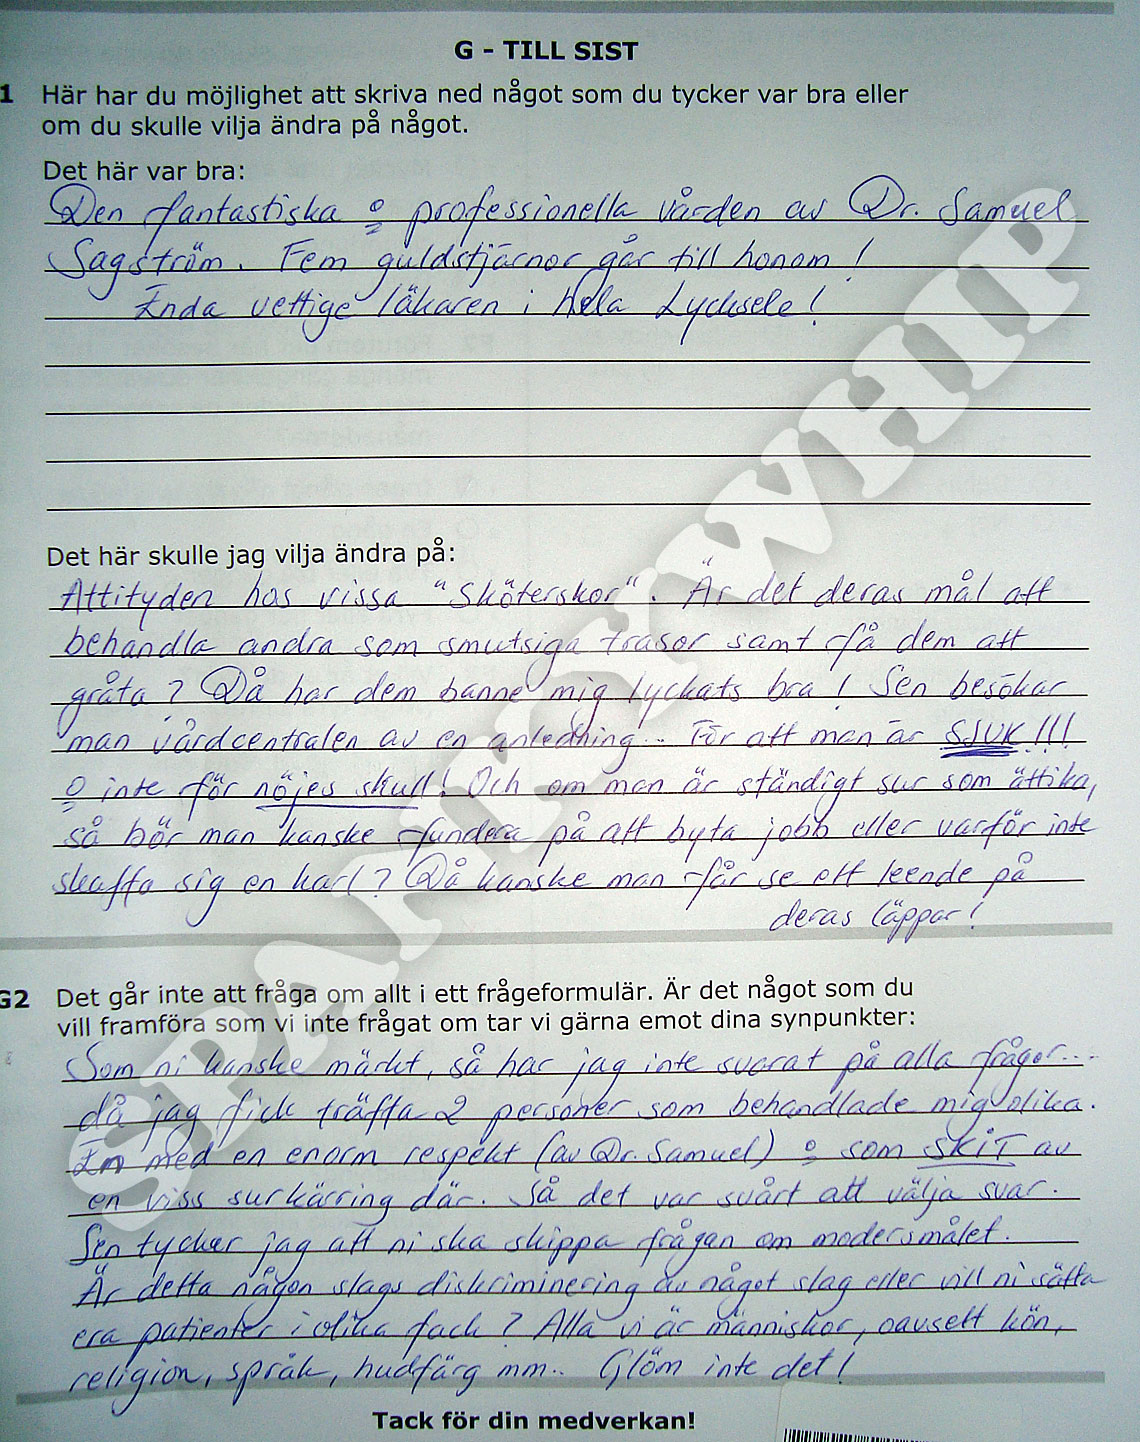 G - TILL SIST
1 Här har du möjlighet att skriva ned något som du tycker var bra eller
om du skulle vilja ändra på något.
Det här var bra:
Den fantastiska o professionella vården av Dr. Samuel
Sagström. Fem guldstjärnor går till honom!
Enda vettige läkaren i hela Lycksele!
Det här skulle jag vilja ändra på:
Attityden hos vissa "Sköterskor". Är det deras mål att
behandla andra som smutsiga trasor samt få dem att
gråta? Då har dem banne mig lyckats bra! Sen besökar
man vårdcentralen av en anledning... För att man är SJUK!!!
o inte för nöjes skull! Och om man är ständigt sur som ättika,
så bör man kanske fundera på att byta jobb eller varför inte
skaffa sig en karl? Då kanske man får se ett leende på
deras läppar!
G2 Det går inte att fråga om allt i ett frågeformulär. Är det något som du
vill framföra som vi inte frågat om tar vi gärna emot dina synpunkter:
Som ni kanske märkt, så har jag inte svarat på alla frågor...
då jag fick träffa 2 personer som behandlade mig olika.
En med en enorm respekt (av Dr. Samuel) o som SKIT av
en viss surkärring där. Så det var svårt att välja svar.
Sen tycker jag att ni ska skippa frågan om modersmålet.
Är detta någon slags diskriminering av något slag eller vill ni sätta
era patienter i olika fack? Alla vi är människor, oavsett kön,
religion, språk, hudfärg mm.. Glöm inte det!
Tack för din medverkan!
SPANKYWHIP